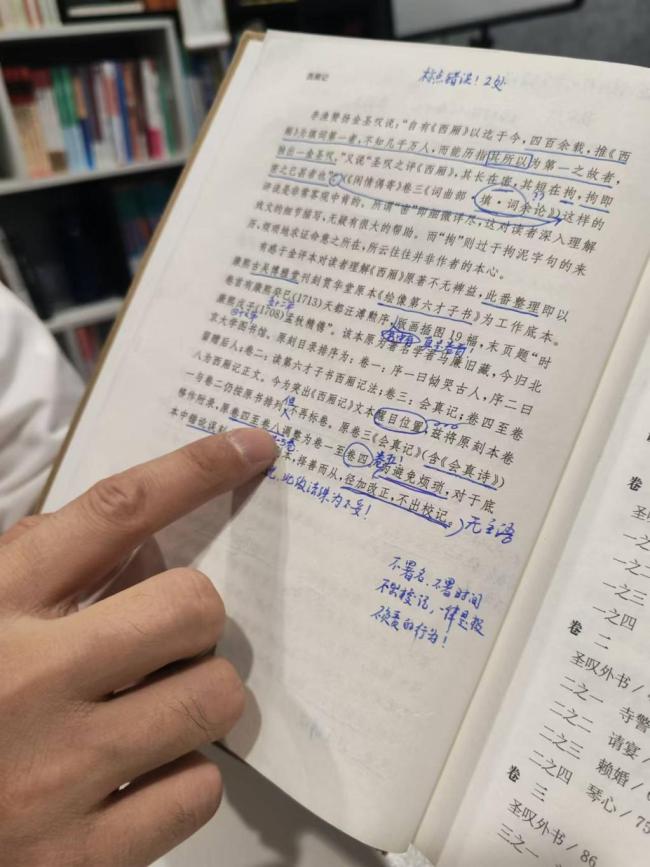 西厢记
标点错误！2处
李渔赞扬金圣叹说："自有《西厢》以迄于今，四百余载，推《西
厢》为填词第一者，不知几千万人，而能历指其所以为第一之故者，
独出一金圣叹。"又说"圣叹之评《西厢》，其长在密，其短在拘，拘即
密之已甚者也"。(《闲情偶寄》卷三《词曲部·填·词余论》)这样的
评说是非常客观中肯的。所谓"密"即细微详尽，这对读者深入理解
戏文的细节描写，无疑有很大的帮助。而"拘"则过于拘泥字句的来
历，琐琐地求证命卷之所在，所云往往并非作者的本心。
有感于金评本对读者理解《西厢》原著不无裨益，此番整理即以
康熙古吴博雅堂刊刻贯华堂原本《绘像第六才子书》为工作底本。
卷首有康熙癸巳(1713)天都汪溥勲序，版画插图19幅，末页题"时
康熙戊子(1708)孟秋精镌"。该本原为著名学者马廉旧藏，今归北
京大学图书馆。原刻目录排序为：卷一：序一曰恸哭古人，序二曰
留赠后人；卷二：读第六才子书西厢记法；卷三：会真记；卷四至卷
八为西厢记正文。今为突出《西厢记》文本醒目位置，兹将原刻本卷
一与卷二仍按原书排列，但不再标卷。原卷三《会真记》(含《会真诗》)
移作附录，原卷四至卷八调整为卷一至卷四。为避免烦琐，对于底
本中错讹误刻
，择善而从，径加改正，不出校记。
无主语
此改法殊为不妥！
不署名、不署时间
不出校记，一律是极
不负责的行为！
卷
圣叹
一之
一之二
一之三
一之四
卷 二
圣叹外书 /
二之一 寺警
二之二 请宴 /
二之三 赖婚 / 6
二之四 琴心 / 75
卷 三
圣叹外书 / 86
三之一